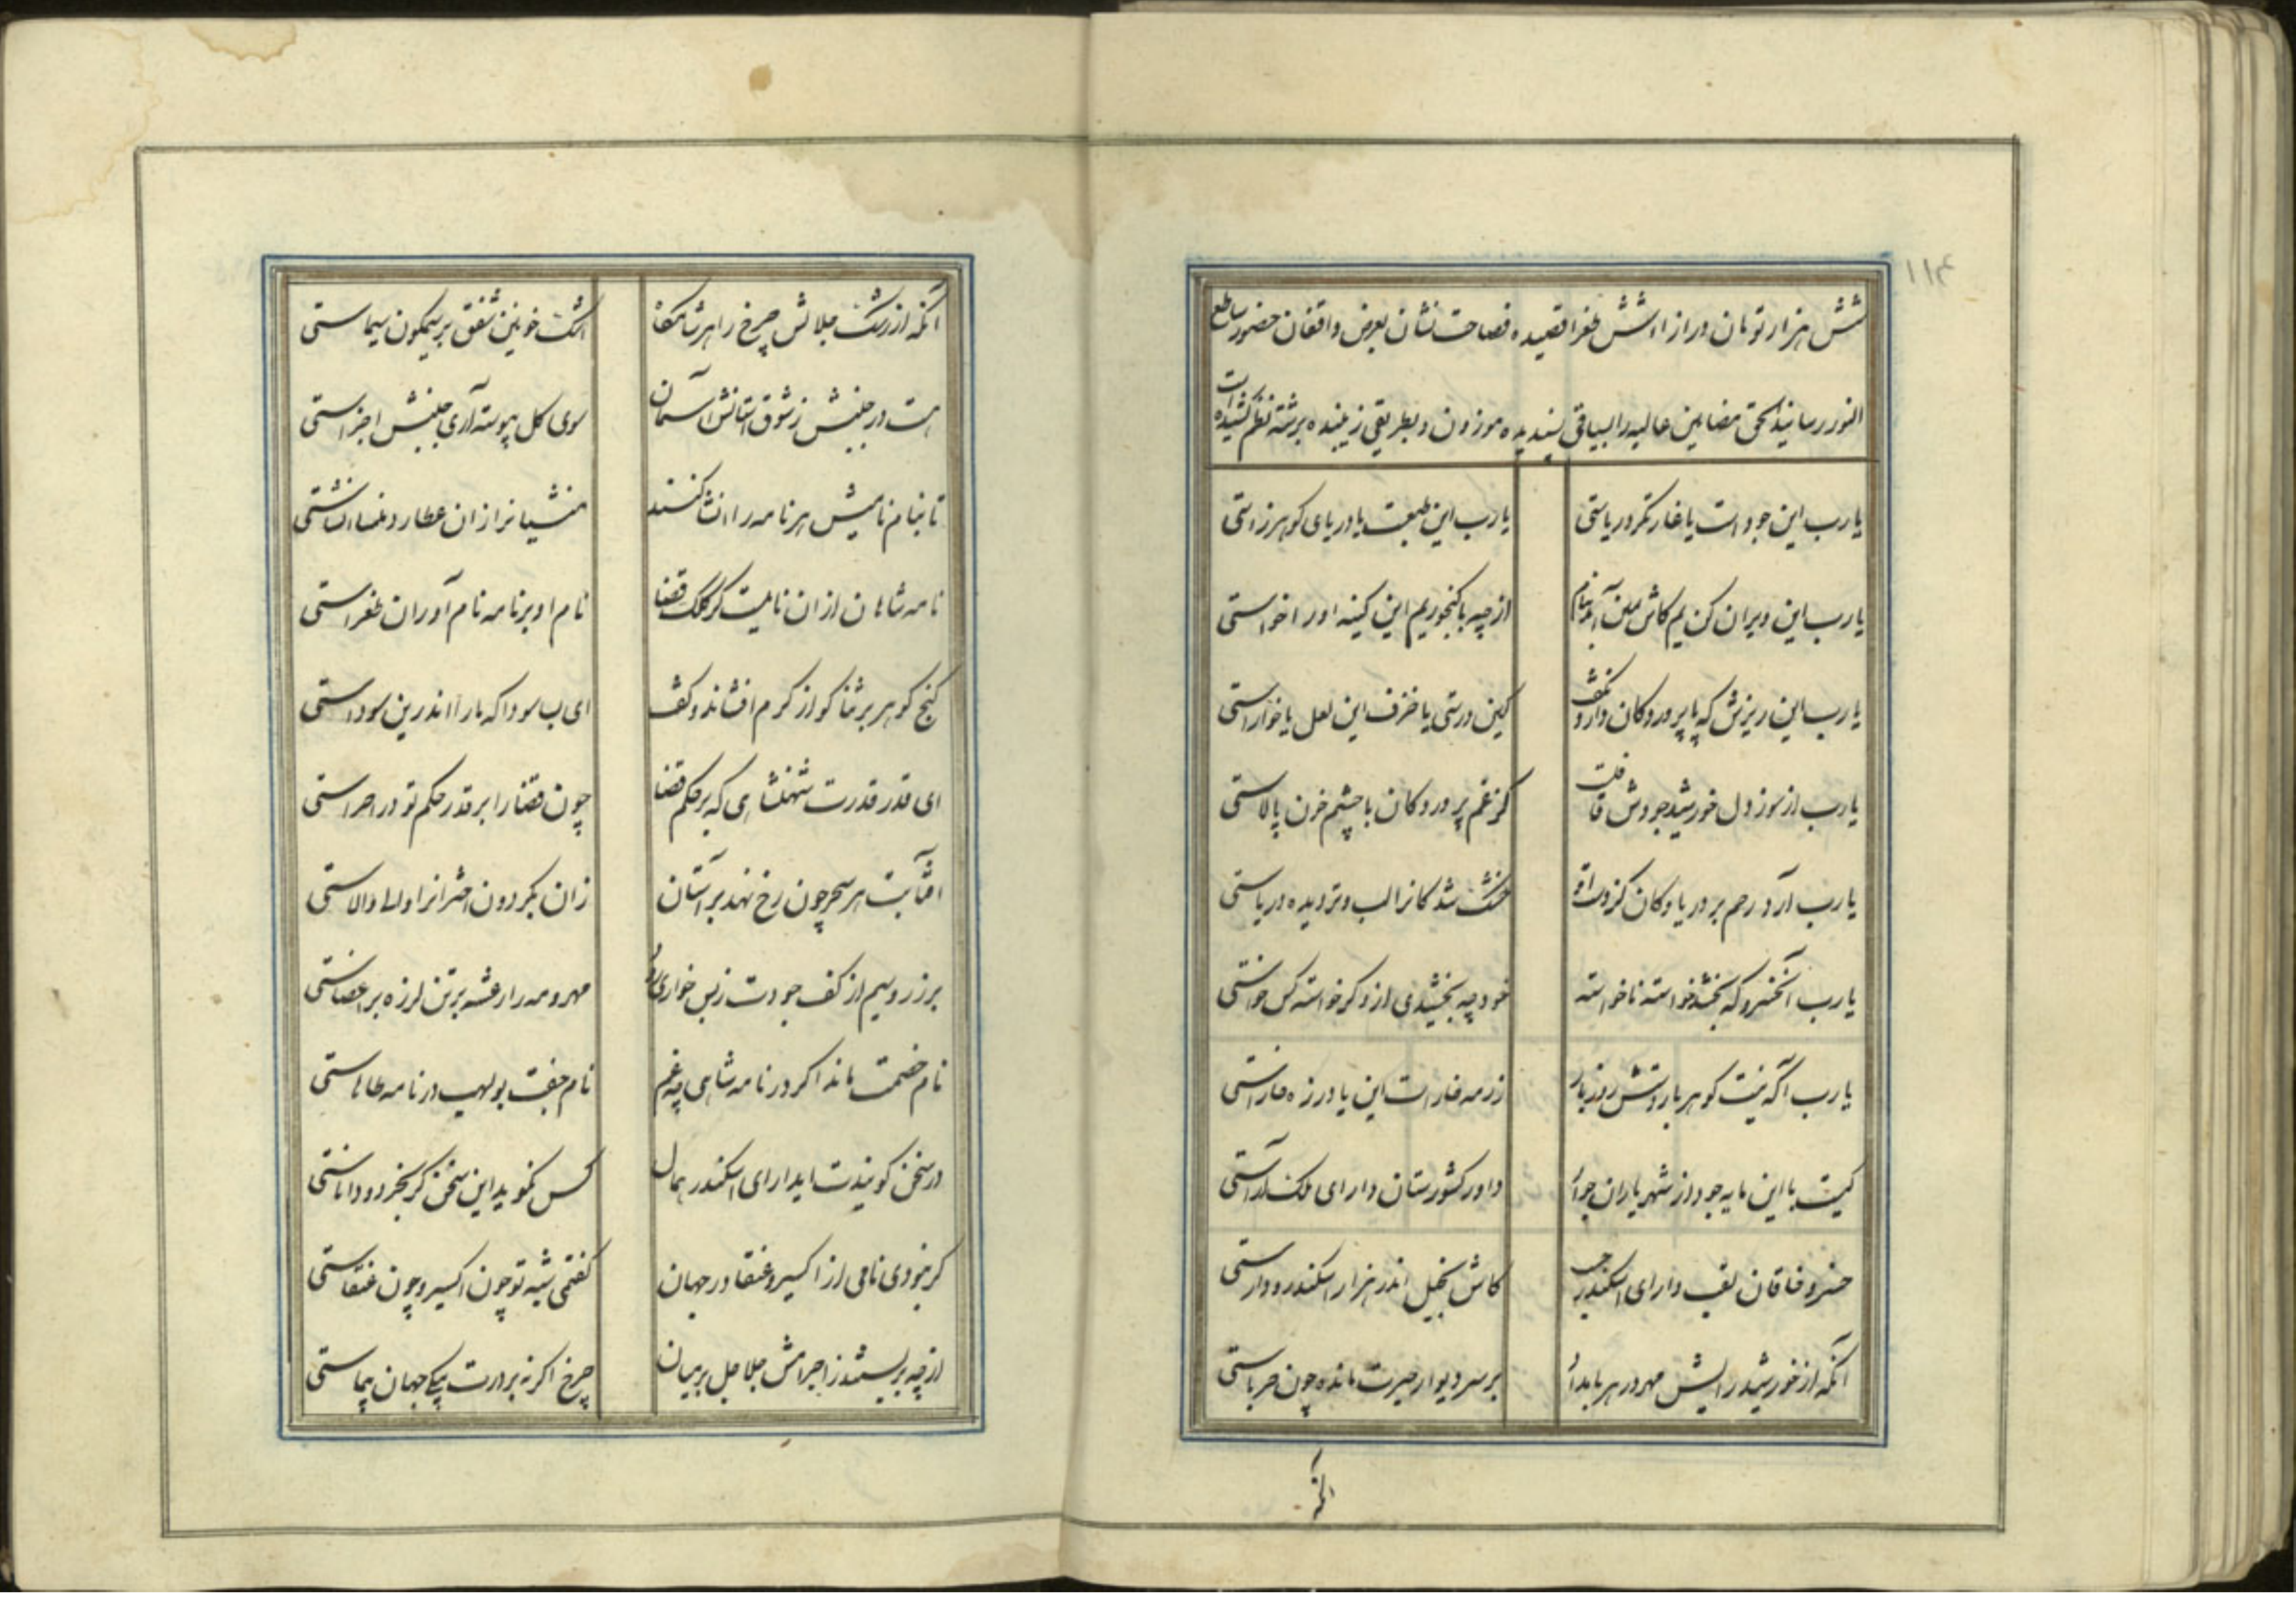 ۱۱۴
شش هزار تومان در ازاء شش طغرا قصیده فصاحت نشان بعرض واقفان حضور ساطع
النور رسانید الحق مضامین عالیه را بسیاقی پسندیده موزون و بطریقی زیبنده برشته نظم کشیده است
یارب این جود است یا غارتگر دریاستی یارب این طبعست یا دریای کوهرزاستی
یارب این ویران کن یم کاش از چه با کنجور یم این کینه او را خواستی
یارب این ریزش که با پرورد کان دارد کفش کین درستی یا خزف این لعل یا خاراستی
یارب از سوز دل خورشید جودش کز غم پرورد کان با چشم خون پالاستی
یارب آرد رحم بر دریا و کان کز دست او خشک شد کانرا لب و تر دیده دریاستی
یارب آنخسرو که بخشد خواسته ناخواسته خود چه بخشیدی از و کر خواسته کس خواستی
یارب آکه نیست کوهر بار دستش روز بار زر مه فارانست این یا درزه فاراستی
کیست با این مایه جود از شهریاران جز داور کشورستان دارای ملک آراستی
خسرو خاقان لقب دارای اسکندر حسب کاش بخیل اندر هزار اسکندر و داراستی
آنکه از خورشید رایش مهر در هر بامداد بر سر دیوار حیرت مانده چون حرباستی
آنکه
آنکه از رشک جلالش چرخ را هر شامکاه اشک خونین شفق بر نیلکون سیماستی
هست در جنبش ز شوق آستانش آسمان سوی کل پیوسته آری جنبش اجزاستی
تا بنام نامیش هر نامه را انشا کنند منشیانرا زان عطارد بنده انشاستی
نامه شاهان از ان نامیست کز کلک قضا نام او بر نامه نام آوران طغراستی
کنج کوهر بر ثنا کو از کرم افشاند و کفت ای بسا سودا که ما را اندرین سوداستی
ای قدر قدرت شهنشاهی که بر حکم قضا چون قضا را بر قدر حکم تو در اجراستی
آفتابت هر سحر چون رخ نهد بر آستان زان بکردون اخترانرا والاستی
بر زر و سیم از کف جودت ز بس خواری رود مهر و مه را رعشه بر تن لرزه بر اعضاستی
نام خصمت ماند اکر در نامه شاهی چه غم نام جفت بولهب در نامه طاهاستی
در سخن کویندت ایدارای اسکندر همال کس نکوید این سخن کر بخرد و داناستی
کر نبودی نامی از اکسیر و عنقا در جهان کفتمی شبه تو چون اکسیر و چون عنقاستی
از چه بر بستند ز اجرامش جلاجل بر میان چرخ اکر نه بر درت پیکی جهان پیماستی